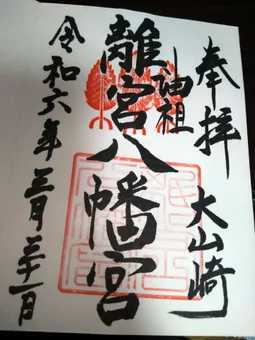 奉拝 大山崎
油祖
離宮八幡宮
令和六年三月二十一日